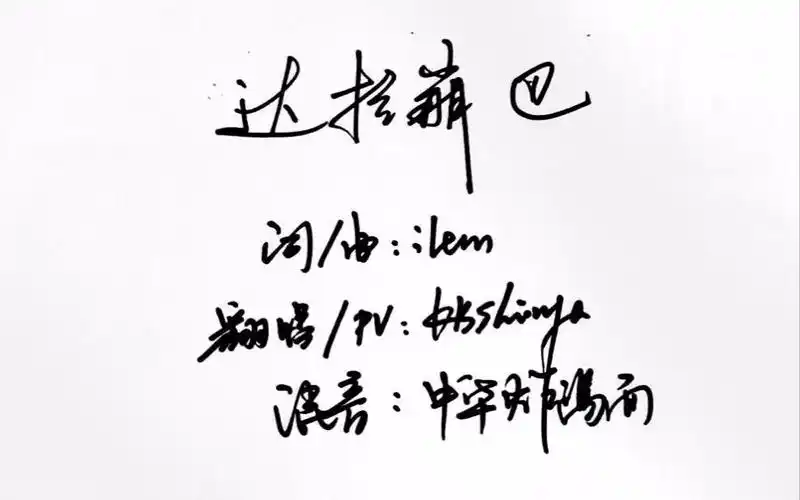 达拉崩巴
词/曲：ilem
翻唱/PV：hkshinya
混音：中华炸鸡面